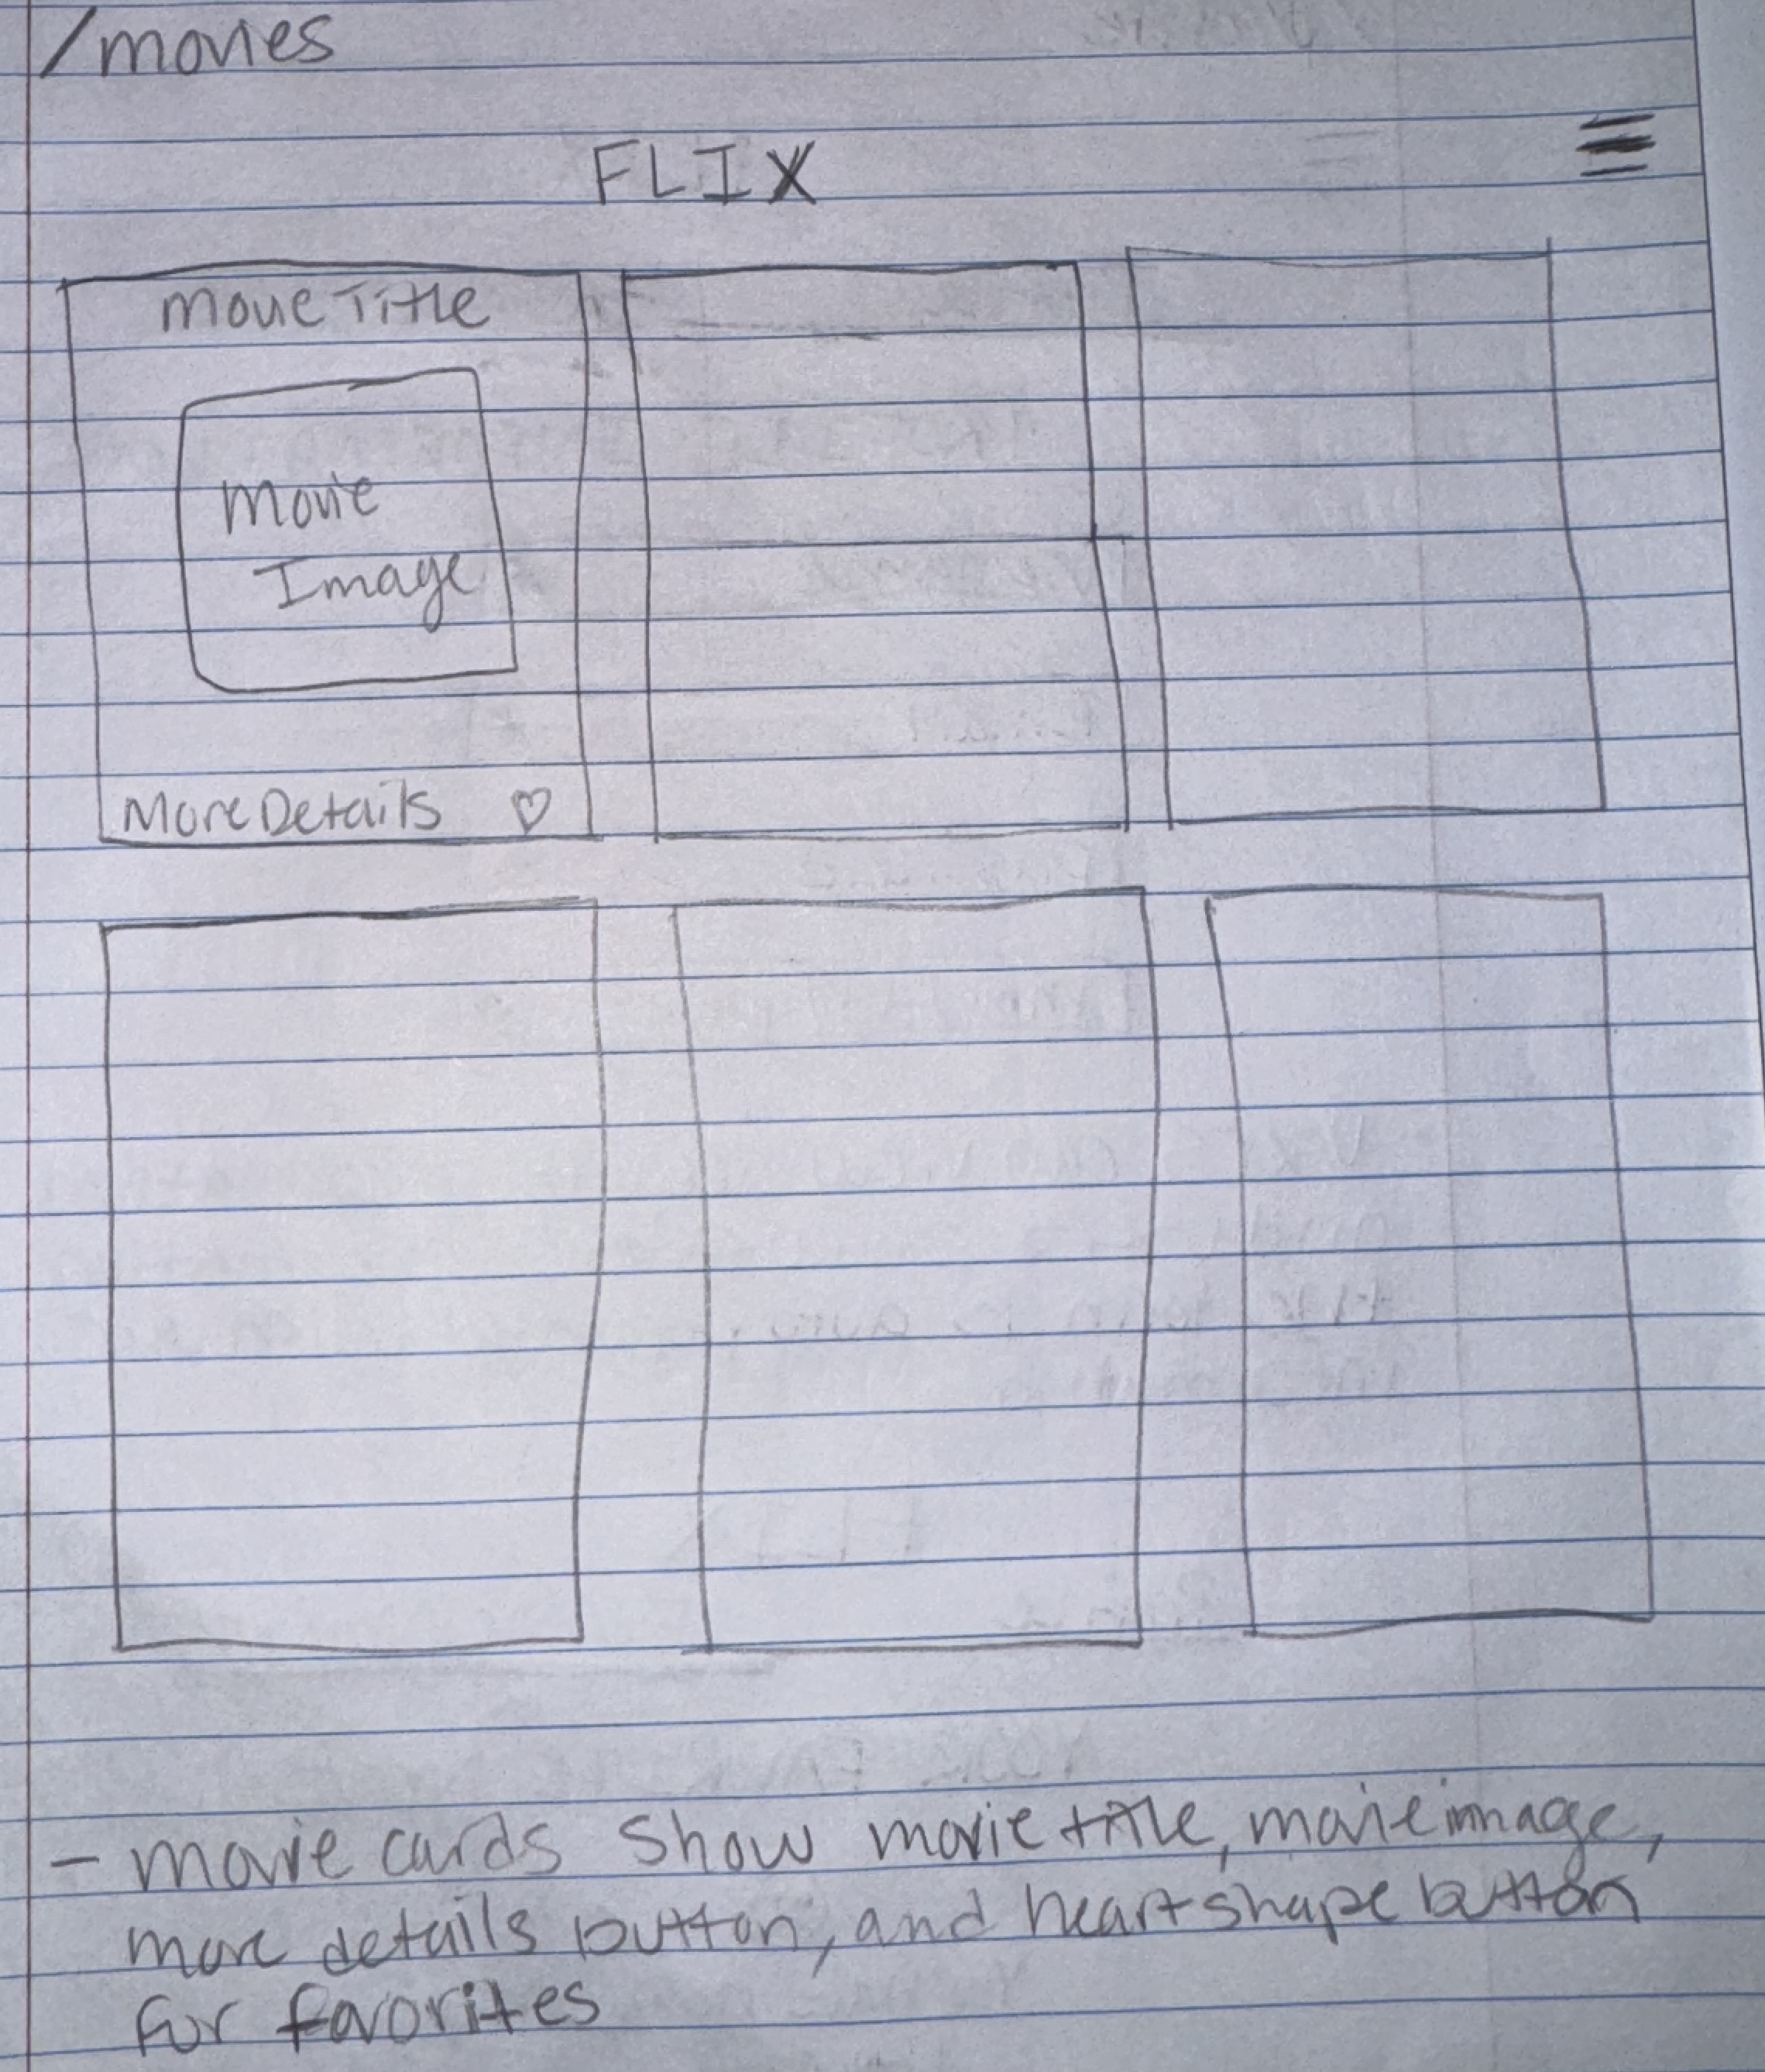 /movies
FLIX
Movie Title
Movie
Image
More Details ♡
- movie cards show movie title, movie image,
more details button, and heart shape button
for favorites